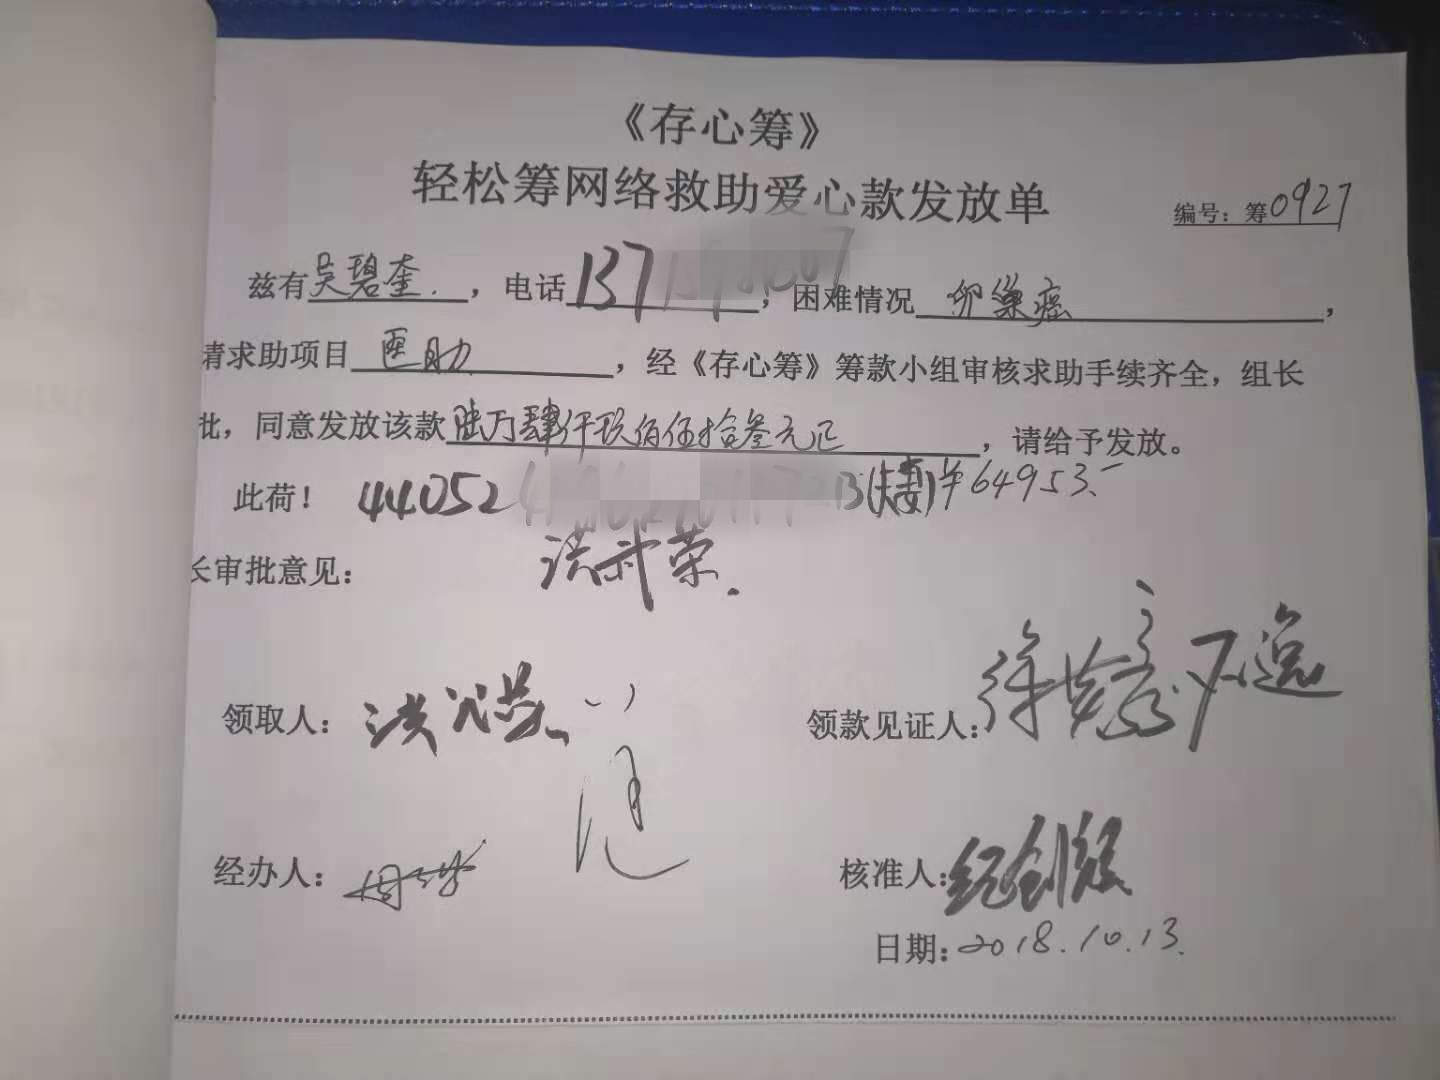 《存心筹》
轻松筹网络救助爱心款发放单
编号：筹0927
兹有吴碧奎．，电话137，困难情况 卵巢癌，
请求助项目 医助，经《存心筹》筹款小组审核求助手续齐全，组长
批，同意发放该款陆万肆仟玖佰伍拾叁元正，请给予发放。
此荷！ 44052 (夫妻)￥64953.-
长审批意见：
领取人：洪
领款见证人：
经办人：
核准人：
日期：2018.10.13.